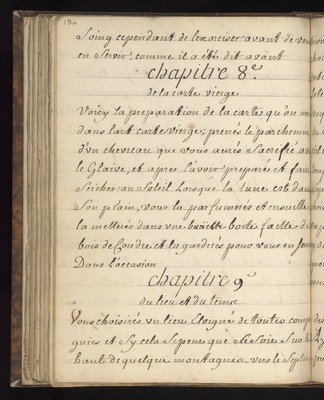 130
Soing cependant de l'exorciser avant de vou
en Servir, comme il a été dit avant
chapitre 8e
de la carte vierge
Voicy la preparation de la carte qu'on nom
dans l'art carte vierge; prenés le parchemin
d'vn chevreau que vous aurés Sacrifié av
le Glaive, et apres l'avoir preparée et fait
Seicher au Soleil Lorsque la lune est dans
Son plain, vous la parfumerés et ensuitte
la metterés dans vne boëtte faitte d
bois de Coudre et la garderés pour vous en
Dans l'occasion
chapitre 9e
du lieu et du tems
Vous choisirés vn lieu Eloigné de toutes comp
gnies et Sy cela Se peut que ce Soit Sur le
haut de quelque montagnes vers le Septen